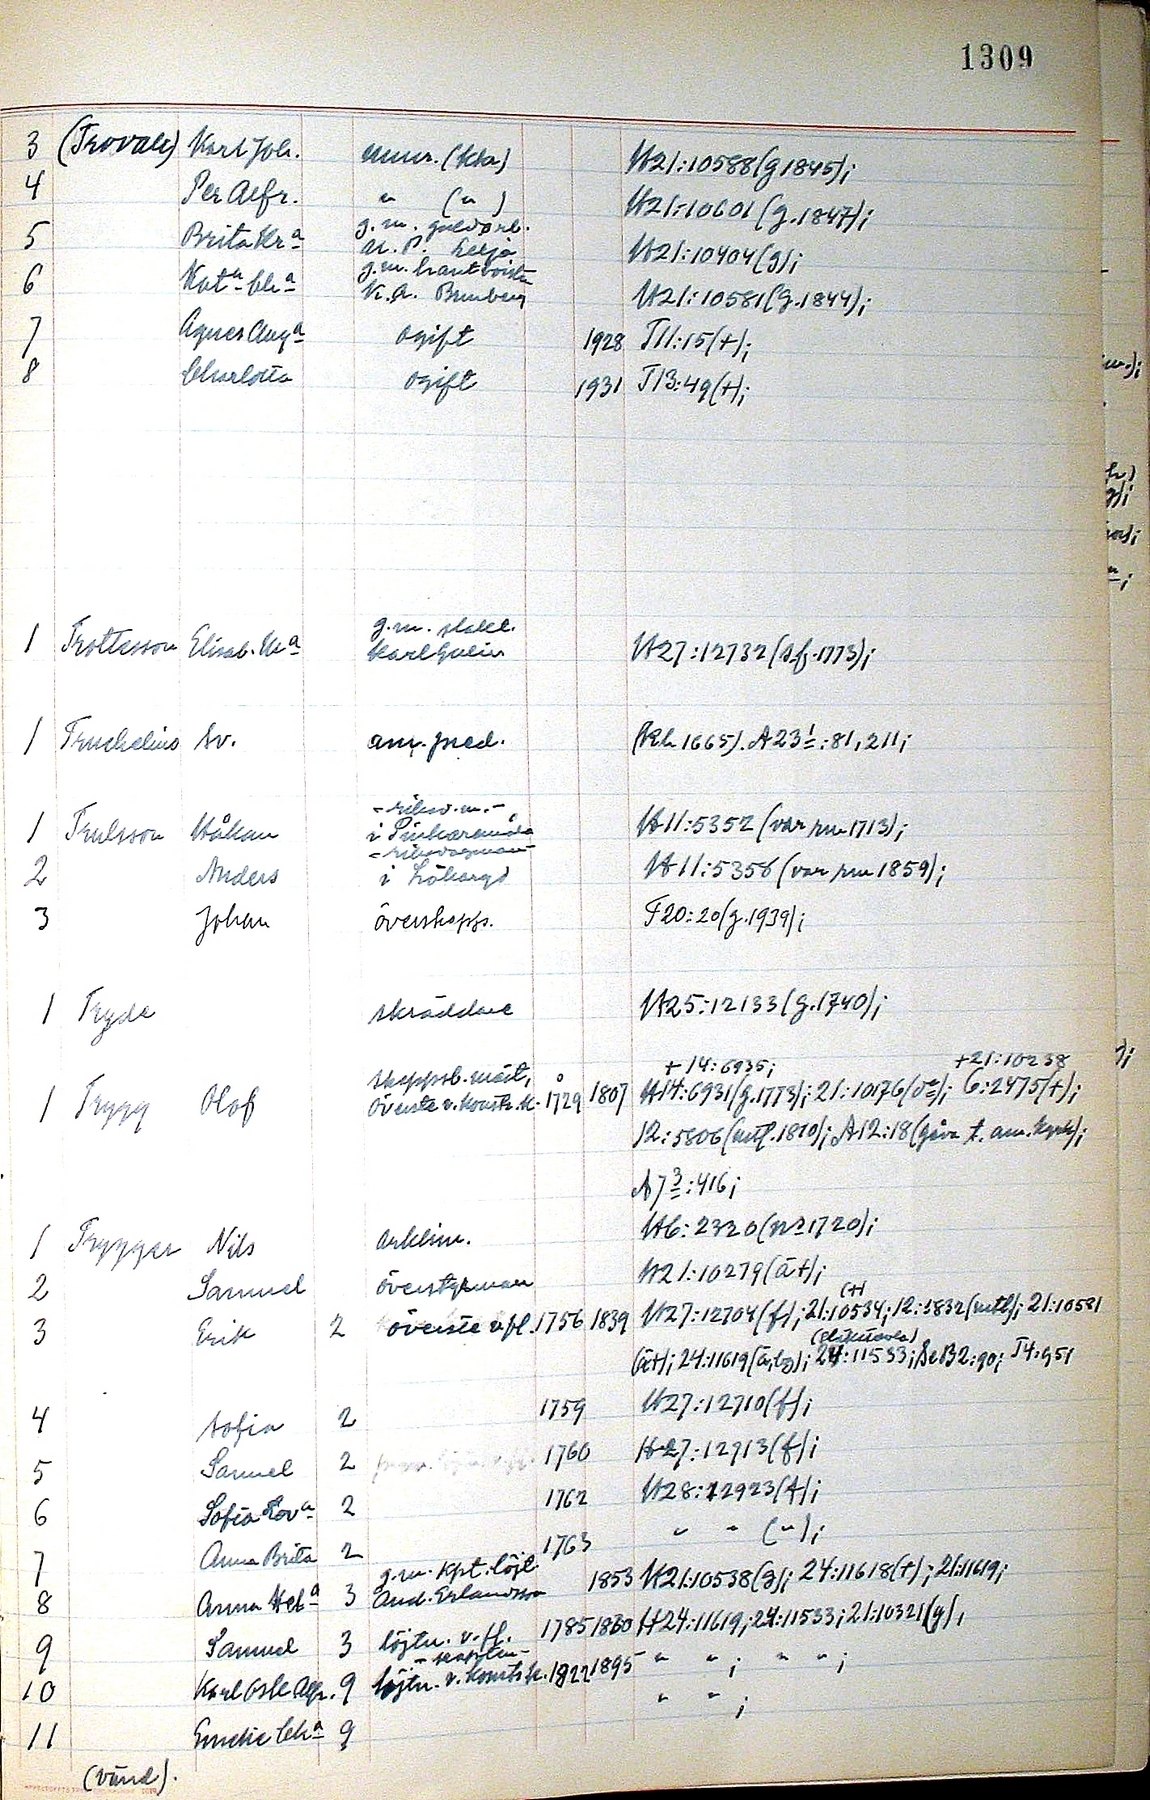 1309
3 (Trovall) Karl Joh. mur. (Kka) H21:10588(g 1845);
4 Per Alfr. " (") H21:10601(g.1847);
5 Brita Kr<u>a</u> g.m. guldarb. H21:10404(g);
N. P. Leija
6 Kat<u>a</u> Ch<u>a</u> g.m. hantv. H21:10581(g.1844);
K. A. Brunberg
7 Agnes Aug<u>a</u> ogift 1928 T11:15(+);
8 Charlotta ogift 1931 T13:49(+);
1 Trottesson Elisab. M<u>a</u> g.m. H27:12732(s.f.1773);
Karl
1 Truchelius Sv. am. pred. (1665). A23<u>1</u>:81, 211;
1 Trulsson Håkan - riksd.m. - H11:5352 (var rm 1713);
i
2 Anders - riksdagsman - H11:5358 (var rm 1859);
i
3 Johan överskepps. F20:20(g.1939);
1 Tryde skräddare H25:12133(g.1740);
+14:6935; +21:10238
1 Trygg Olof skeppsb. mäst, överste v. konstr. k. 1729 1807 H14:6931(g.1773); 21:10176(d<u>o</u>); 6:2475(+);
12:5806(mtl.1810); A12:18(gåva t. am. kyrk);
A7<u>3</u>:416;
1 Trygger Nils arklim. H6:2320(n 1720);
2 Samuel överstyrman H21:10279(ä+);
(+)
3 Erik 2 överste v. fl. 1756 1839 H27:12704(f); 21:10534; 12:5832(mtl); 21:10581
(ä+); 24:11619(ä,bg); 24:11533; SeB2:90; T4:951
4 Sofia 2 1759 H27:12710(f);
5 Samuel 2 1760 H27:12713(f);
6 Sofia Lov<u>a</u> 2 1762 H28:12923(f);
7 Anna Brita 2 1763 " " (");
8 Anna Hel<u>a</u> 3 g.m. kpt. löjt. 1853 H21:10538(g); 24:11618(+); 21:11619;
And. Erlandsson
9 Samuel 3 löjtn. v. fl. 1785 1830 H24:11619; 24:11533; 21:10321(g),
- kapten -
10 Karl Osk. Alfr. 9 löjtn. v. konstr. k. 1822 1895 " " ; " " ;
11 Emelie Ch<u>a</u> 9 " " ;
(vänd).